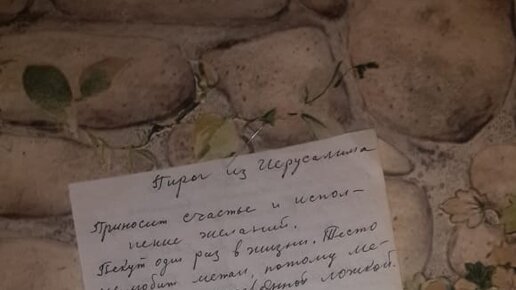 Пирог из Иерусалима
Приносит счастье и испол-
нение желаний.
Пекут один раз в жизни. Тесто
не любит метал, потому ме-
ложкой.